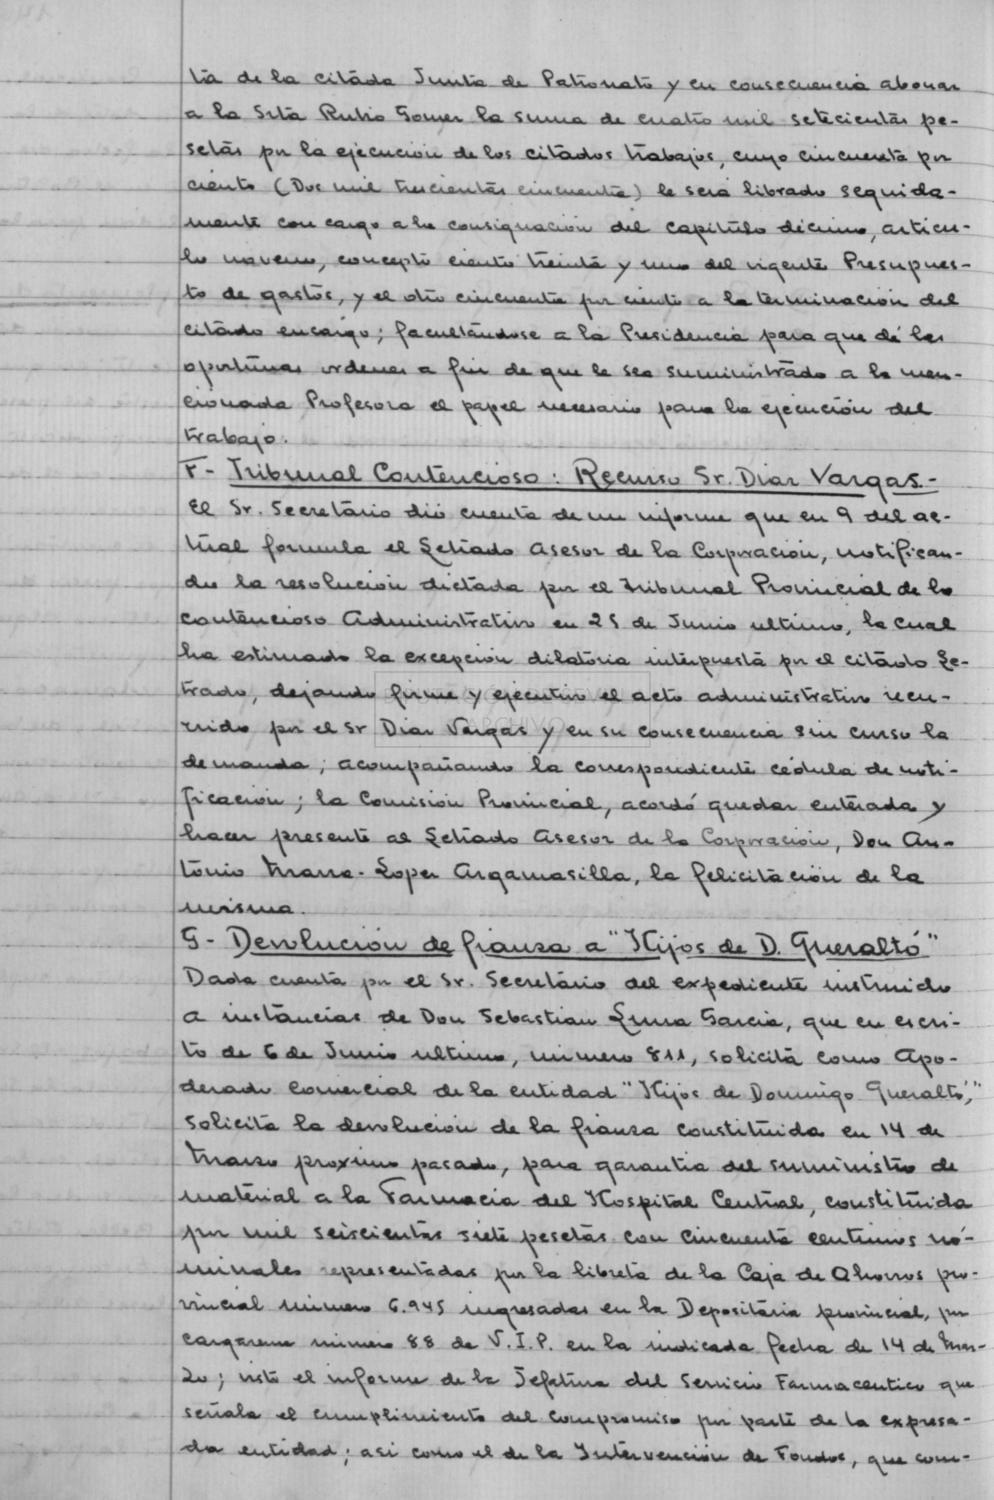 tia de la citada Junta de Patronato y en consecuencia abonar
a la Srta Rubio Gomez la suma de cuatro mil setecientas pe-
setas por la ejecución de los citados trabajos, cuyo cincuenta por
ciento (Dos mil trescientas cincuenta) le será librado seguida-
mente con cargo a la consignación del capitulo décimo, articu-
lo noveno, concepto ciento treinta y uno del vigente Presupues-
to de gastos, y el otro cincuenta por ciento a la terminación del
citado encargo; facultándose a la Presidencia para que dé las
oportunas ordenes a fin de que le sea suministrado a la men-
cionada Profesora el papel necesario para la ejecución del
trabajo.
F- Tribunal Contencioso: Recurso Sr. Diaz Vargas.-
El Sr. Secretario dió cuenta de un informe que en 9 del ac-
tual formula el Letrado Asesor de la Corporación, notifican-
do la resolución dictada por el Tribunal Provincial de lo
contencioso Administrativo en 25 de Junio ultimo, la cual
ha estimado la excepción dilatoria interpuesta por el citado Le-
trado, dejando firme y ejecutivo el acto administrativo recu-
rrido por el Sr Diaz Vargas y en su consecuencia sin curso la
demanda; acompañando la correspondiente cédula de noti-
ficación; la Comisión Provincial, acordó quedar enterada y
hacer presente al Letrado Asesor de la Corporación, Don An-
tonio Marra-Lopez Argamasilla, la felicitación de la
misma.
G- Devolución de fianza a "Hijos de D. Queraltó"
Dada cuenta por el Sr. Secretario del expediente instruido
a instancias de Don Sebastian Luna Garcia, que en escri-
to de 6 de Junio ultimo, número 811, solicita como Apo-
derado Comercial de la entidad "Hijos de Domingo Queraltó,"
solicita la devolución de la fianza constituida en 14 de
Marzo proximo pasado, para garantia del suministro de
material a la Farmacia del Hospital Central, constituida
por mil seiscientas siete pesetas con cincuenta centimos nó-
minales representadas por la libreta de la Caja de Ahorros pro-
vincial número 6.945 ingresadas en la Depositária provincial, por
cargareme número 88 de V.I.P. en la indicada fecha de 14 de Mar-
zo; visto el informe de la Jefatura del Servicio Farmaceutico que
señala el cumplimiento del compromiso por parte de la expresa-
da entidad; asi como el de la Intervención de Fondos, que com-
ARCHIVO